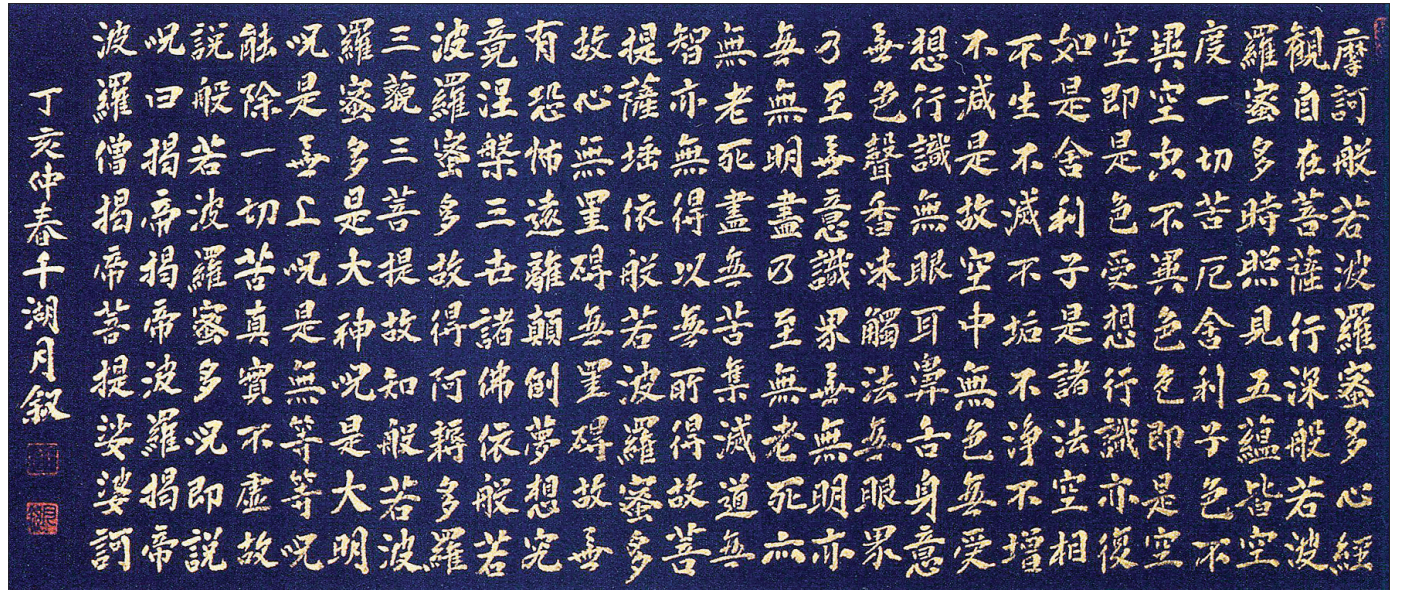 摩訶般若波羅蜜多心經
観自在菩薩行深般若波
羅蜜多時照見五蘊皆空
度一切苦厄舍利子色不
異空空不異色色即是空
空即是色受想行識亦復
如是舍利子是諸法空相
不生不滅不垢不淨不增
不減是故空中無色無受
想行識無眼耳鼻舌身意
無色聲香味觸法無眼界
乃至無意識界無無明亦
無無明盡乃至無老死亦
無老死盡無苦集滅道無
智亦無得以無所得故菩
提薩埵依般若波羅蜜多
故心無罣碍無罣碍故無
有恐怖遠離顛倒夢想究
竟涅槃三世諸佛依般若
波羅蜜多故得阿耨多羅
三藐三菩提故知般若波
羅蜜多是大神呪是大明
呪是無上呪是無等等呪
能除一切苦真實不虛故
說般若波羅蜜多呪即說
呪曰揭帝揭帝波羅揭帝
波羅僧揭帝菩提娑婆訶
丁亥仲春千湖月